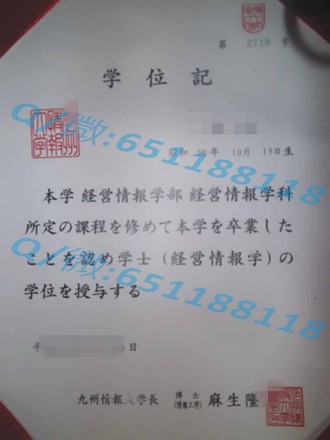 第 2718 号
学位記
Q/微:651188118
年 10月 13日生
本学 経営情報学部 経営情報学科
所定の課程を修めて本学を卒業した
ことを認め学士（経営情報学）の
学位を授与する
Q/微:651188118
Q/微:651188118
日
九州情報大学長 博士（情報工学） 麻生隆